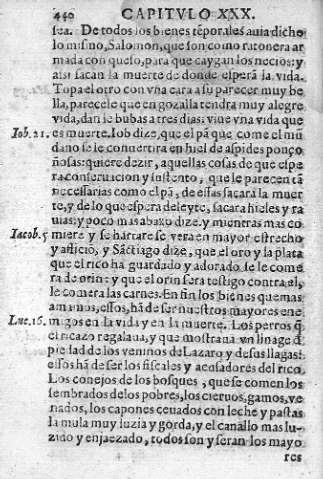 440 CAPITVLO XXX.
sea. De todos los bienes tẽporales auia dicho
lo mismo, Salomon, que son como ratonera ar
mada con queso, para que caygan los necios: y
assi sacan la muerte de donde esperã la vida.
Topa el otro con vña cara a su parecer muy be
lla, parecele que en gozalla tendra muy alegre
vida, dan le bubas a tres dias: viue vna vida que
Iob. 21. es muerte. Iob dize, que el pã que come el mũ
dano se le conuertira en hiel de aspides ponço
ñosas: quiere dezir, aquellas cosas de que espe
ra conseruacion y sustento, que le parecen tã
necessarias como el pã, de essas sacará la muer
te, y de lo que espera deleyte, sacara hieles y ra
uias: y poco mas abaxo dize, y mientras mas co
Iacob. 5 miere y se hartare se vera en mayor estrecho
y afflicio, y Sãctiago dize, que el oro y la plata
que el rico ha guardado y adorado se le come
ra de orin: y que el orin sera testigo contra el,
le comera las carnes. En fin los bienes que mas
amamos, essos, hã de ser nuestros mayores ene
Luc. 16. migos en la vida y en la muerte. Los perros q̃
el ricazo regalaua, y que mostrauã vn linage d̃
piedad de los veninos de Lazaro y de sus llagas:
essos hã de ser los fiscales y acusadores del rico.
Los conejos de los bosques, que se comen los
sembrados de los pobres, los cieruos, gamos, ve
nados, los capones ceuados con leche y pastas
la mula muy luzia y gorda, y el canallo mas lu-
zido y enjaezado, todos son y seran los mayo
res